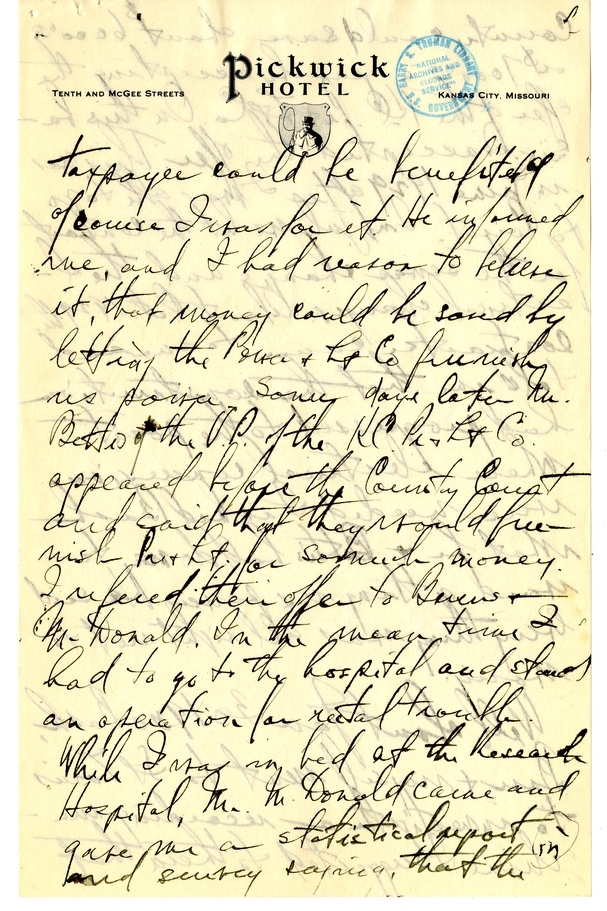 Pickwick
HOTEL
TENTH AND MCGEE STREETS
KANSAS CITY, MISSOURI
HARRY S. TRUMAN LIBRARY
"NATIONAL
ARCHIVES AND
RECORDS
SERVICE"
U.S. GOVERNMENT
taxpayer could be benefited
of course I was for it. He informed
me, and I had reason to believe
it, that money could be saved by
letting the Power & Lt Co furnish
us power. Some days later Mr.
the V.P. of the K.C. Pr & Lt Co.
appeared before the County Court
and said that they would fur-
nish Pr & Lt for so much money.
I refered their offer to Burns &
McDonald. In the mean time I
had to go to the hospital and stand
an operation for rectal trouble.
While I was in bed at the Research
Hospital, Mr. McDonald came and
gave me a statistical report
and survey saying, that the